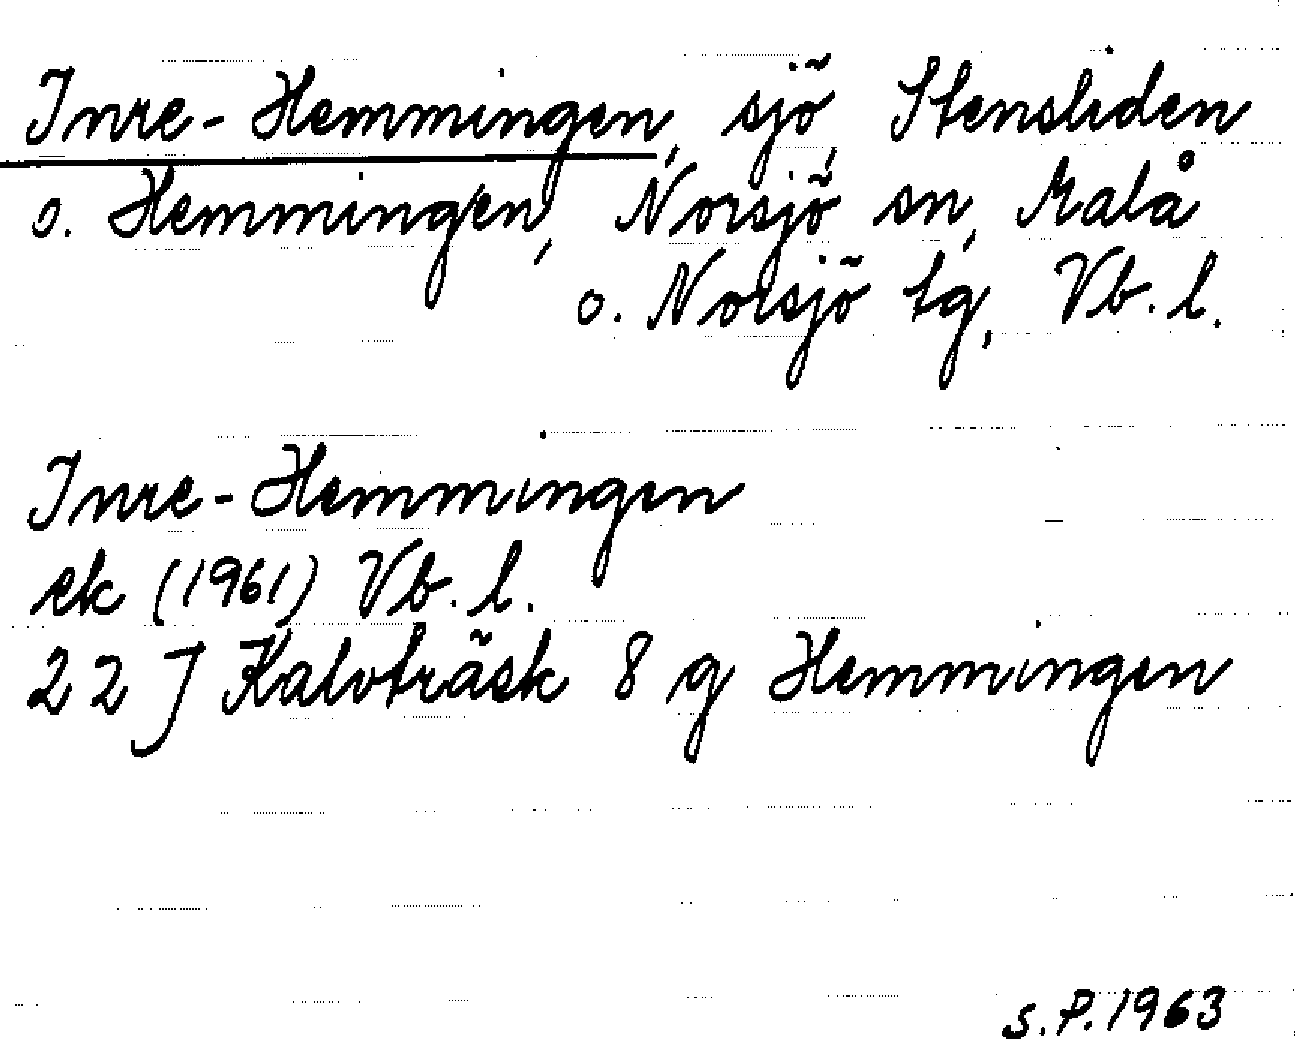 Inre-Hemmingen, sjö, Stensliden
o. Hemmingen, Norsjö sn, Malå
o. Norsjö tg, Vb. l.
Inre-Hemmingen
ek (1961) Vb. l.
22 J Kalvträsk 8 g Hemmingen
S.P. 1963